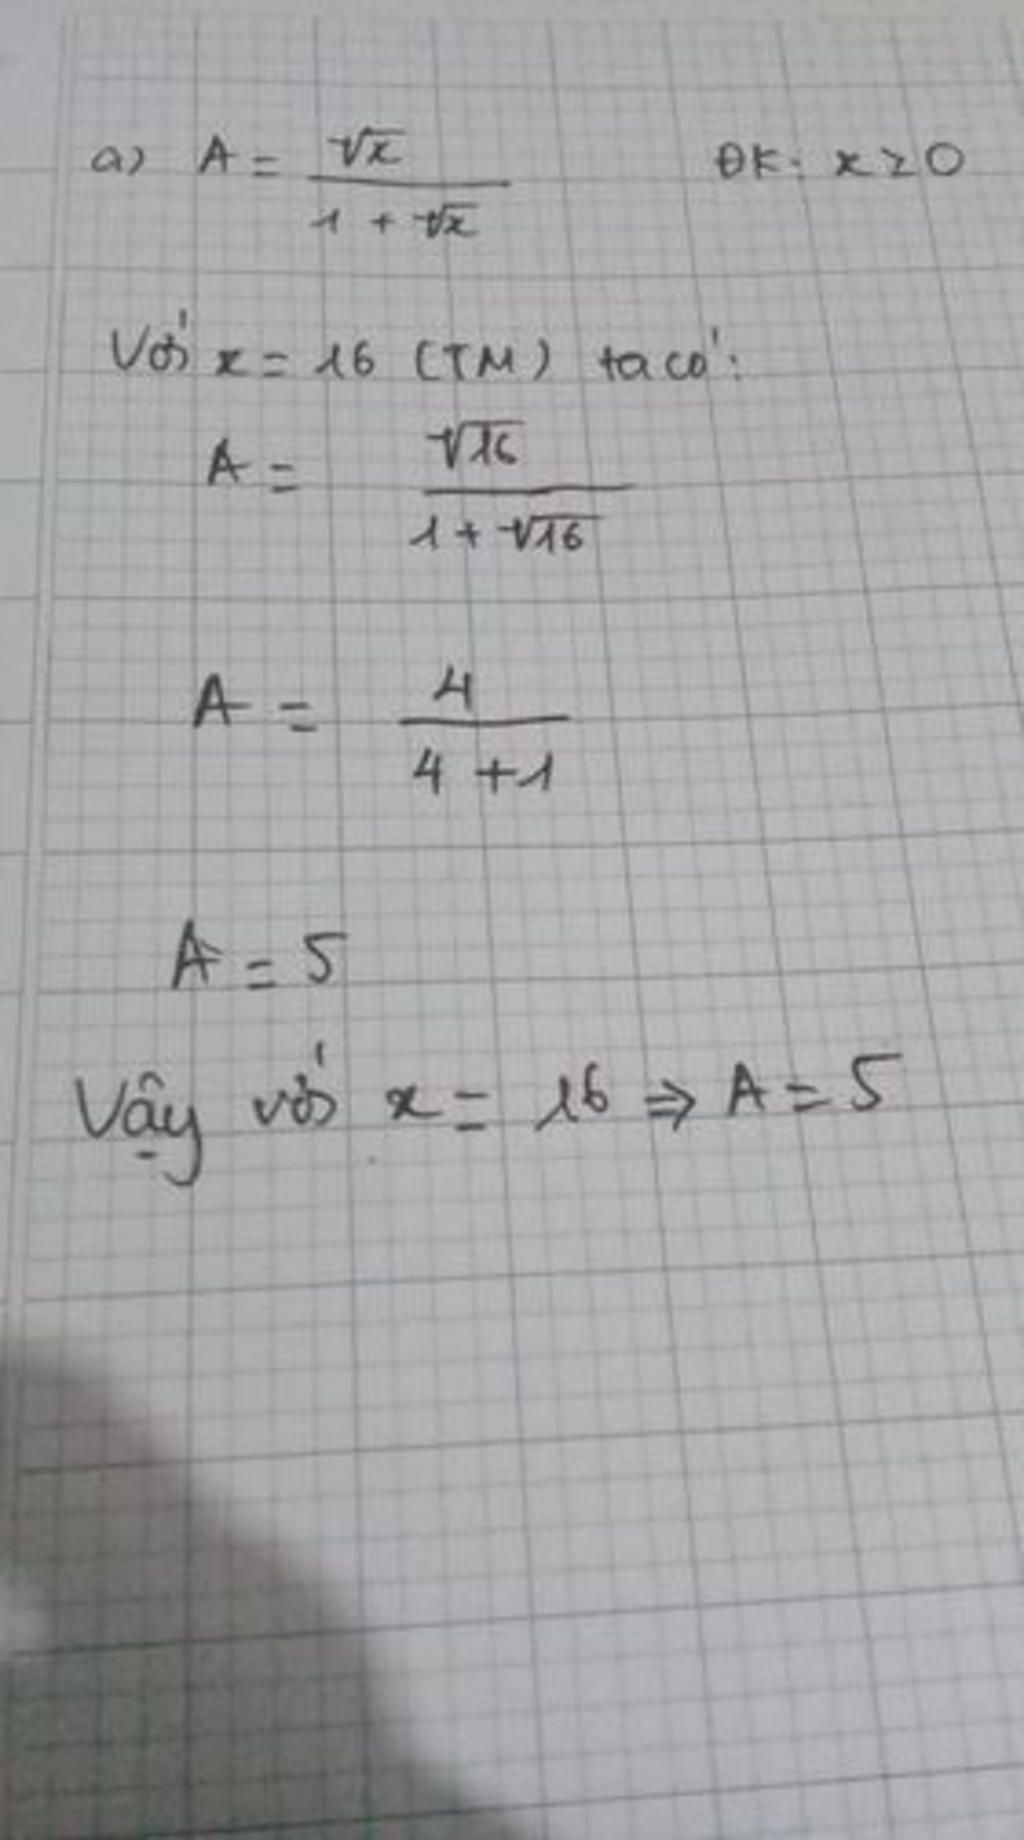 a) A = √x / (1 + √x)    ĐK: x ≥ 0
Với x = 16 (TM) ta có:
A = √16 / (1 + √16)
A = 4 / (4 + 1)
A = 5
Vậy với x = 16 ⇒ A = 5